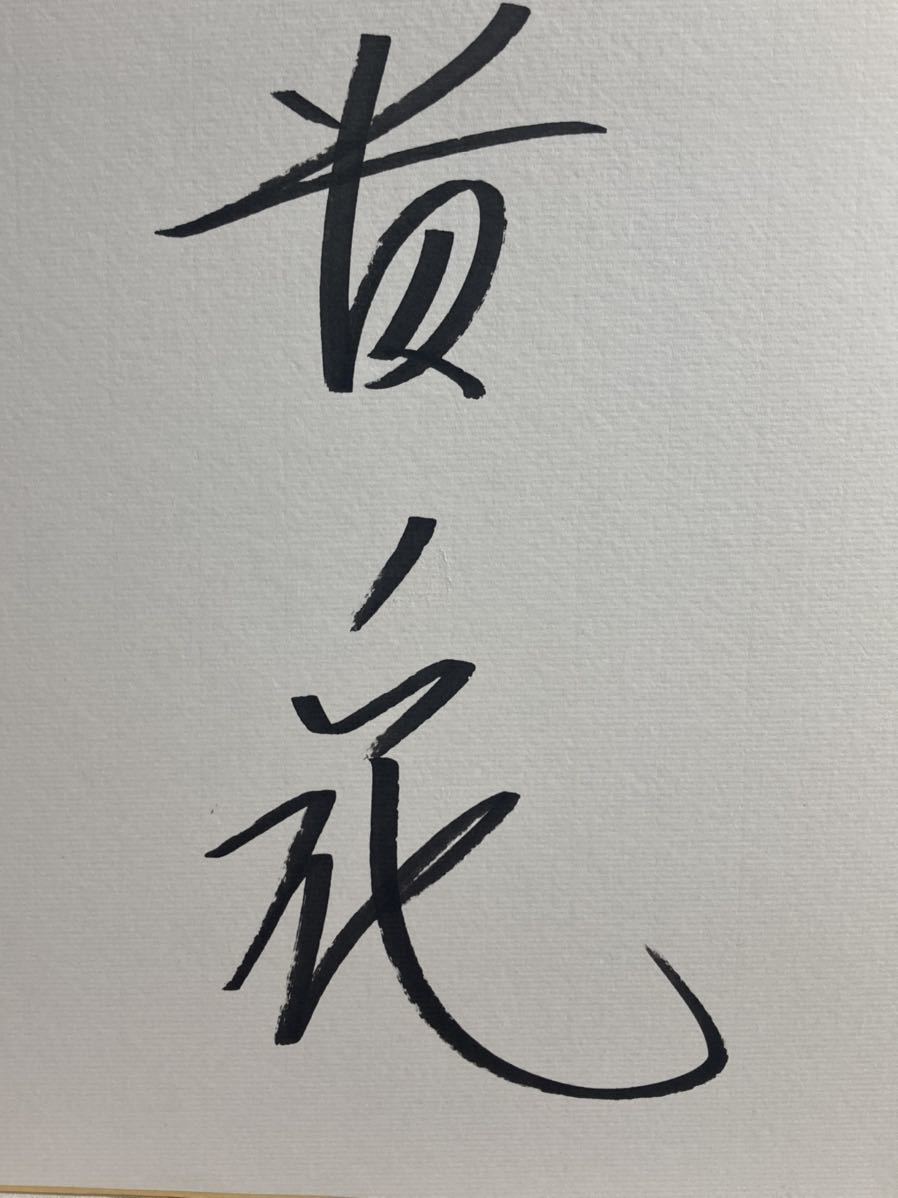 貴ノ花